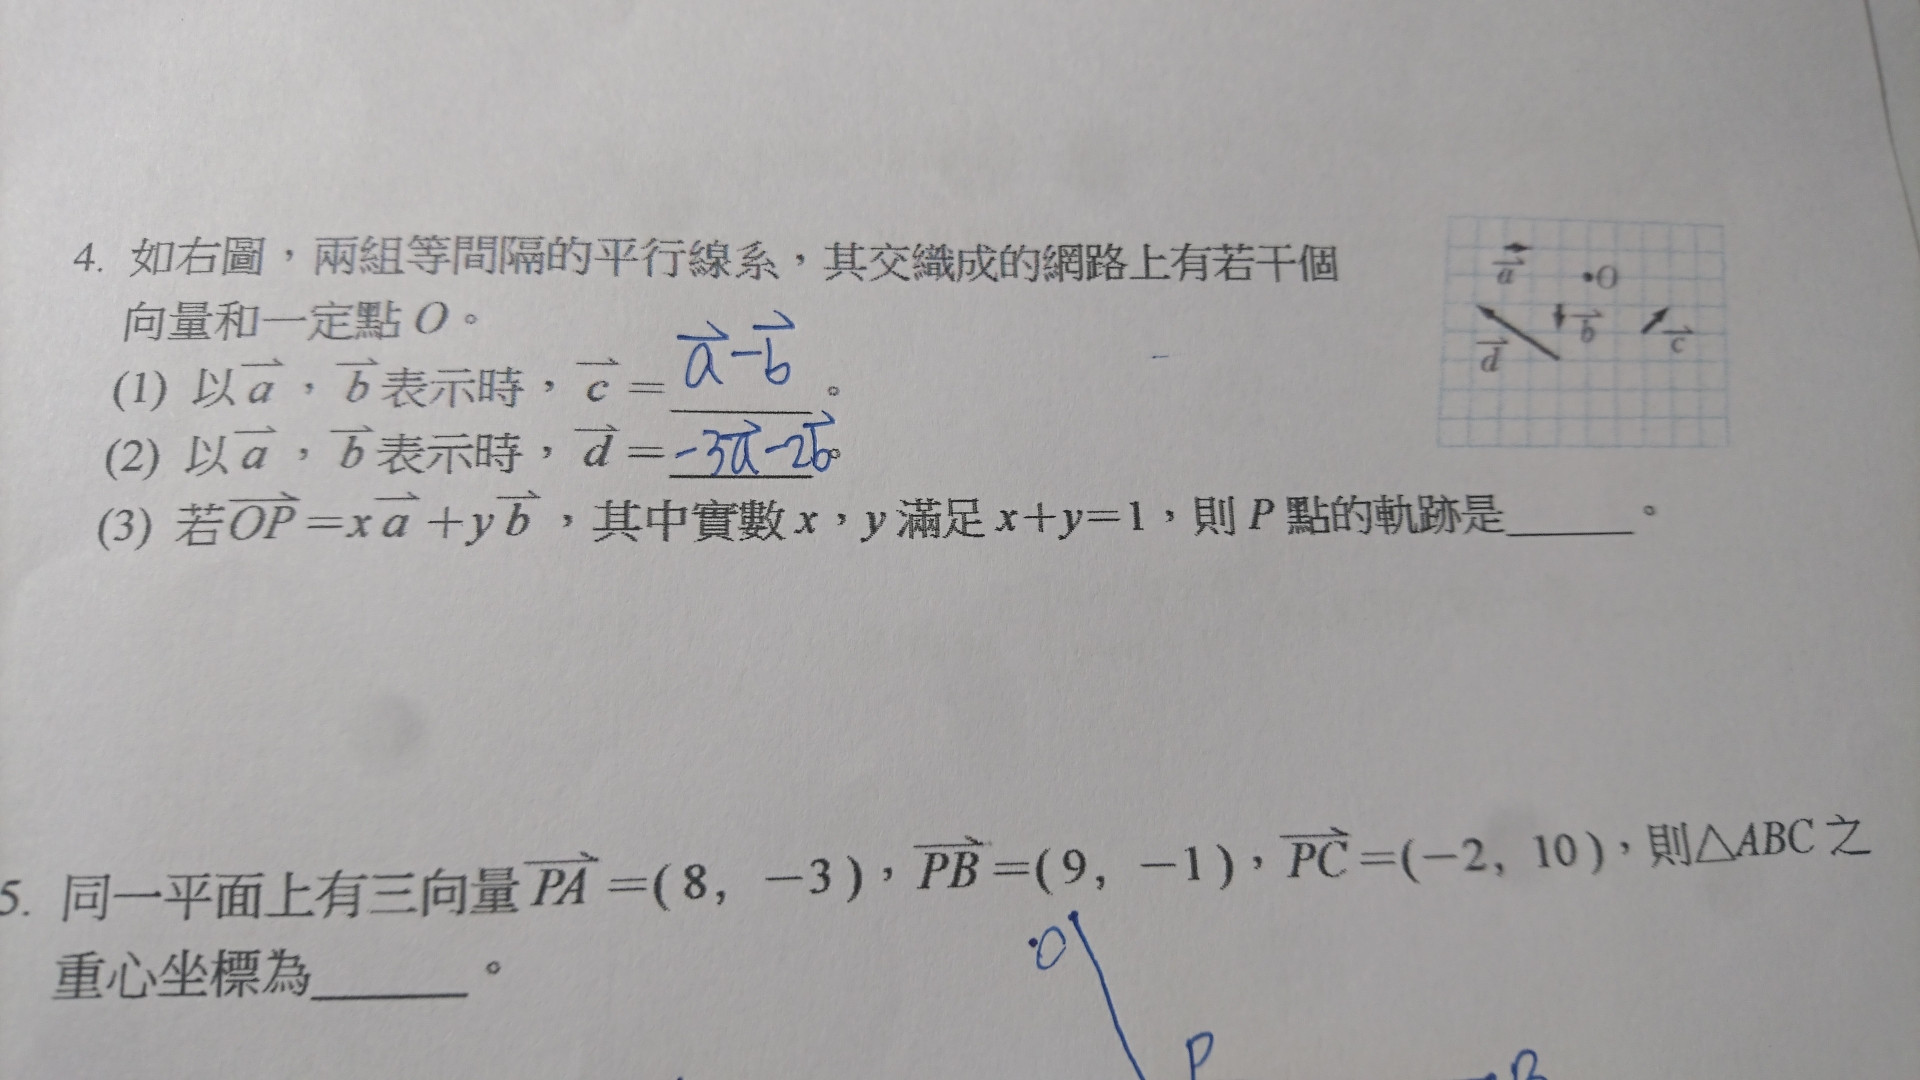 4. 如右圖，兩組等間隔的平行線系，其交織成的網路上有若干個
向量和一定點 O。
(1) 以 a⃗，b⃗ 表示時，c⃗ = a⃗-b⃗。
(2) 以 a⃗，b⃗ 表示時，d⃗ = -3a⃗-2b⃗。
(3) 若 OP⃗ = x a⃗ + y b⃗，其中實數 x，y 滿足 x+y=1，則 P 點的軌跡是______。
a⃗
O
b⃗
c⃗
d⃗
5. 同一平面上有三向量 PA⃗ =(8, −3)，PB⃗ =(9, −1)，PC⃗ =(−2, 10)，則△ABC 之
重心坐標為______。
O
P